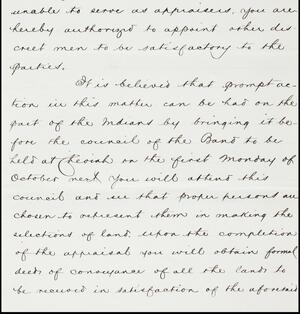 unable to serve as appraisers, you are
hereby authorized to appoint other dis-
creet men to be satisfactory to the
parties.
It is believed that prompt ac-
tion in this matter can be had on the
part of the Indians by bringing it be-
fore the council of the Band to be
held at Cheoah on the first Monday of
October next. You will attend this
council and see that proper persons are
chosen to represent them in making the
selections of land, upon the completion
of the appraisal you will obtain formal
deeds of conveyance of all the lands to
be received in satisfaction of the aforesaid